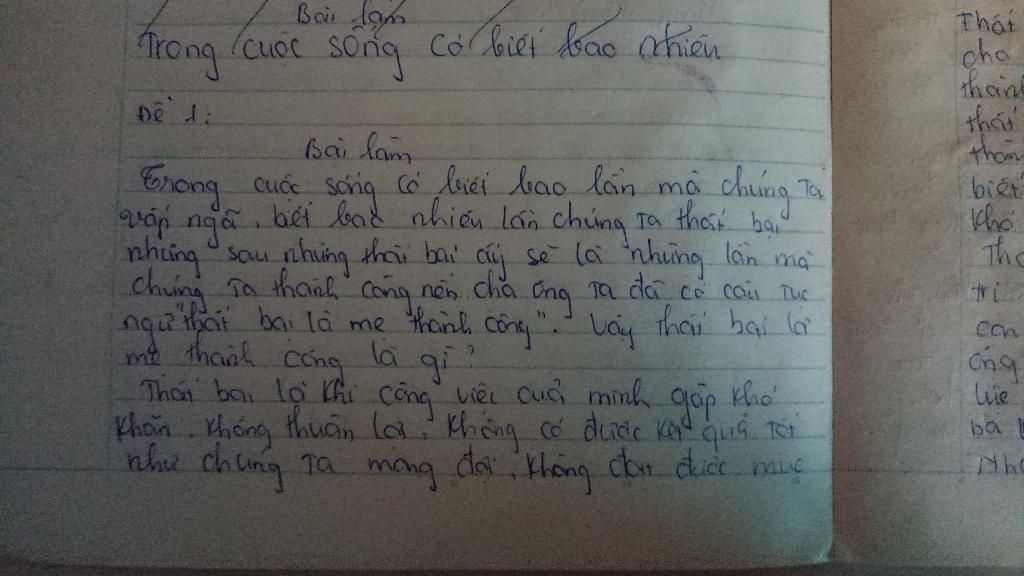 Bài làm
Trong cuộc sống có biết bao nhiêu
Đề 1:
Bài làm
Trong cuộc sống có biết bao lần mà chúng ta
vấp ngã, biết bao nhiêu lần chúng ta thất bại
nhưng sau những thất bại ấy sẽ là những lần mà
chúng ta thành công nên cha ông ta đã có câu tục
ngữ "thất bại là mẹ thành công". Vậy thất bại là
mẹ thành công là gì?
Thất bại là khi công việc của mình gặp khó
khăn, không thuận lợi, không có được kết quả tốt
như chúng ta mong đợi, không đạt được mục
Thất
cha
thành
thất
biết
khó
trì
con
ông